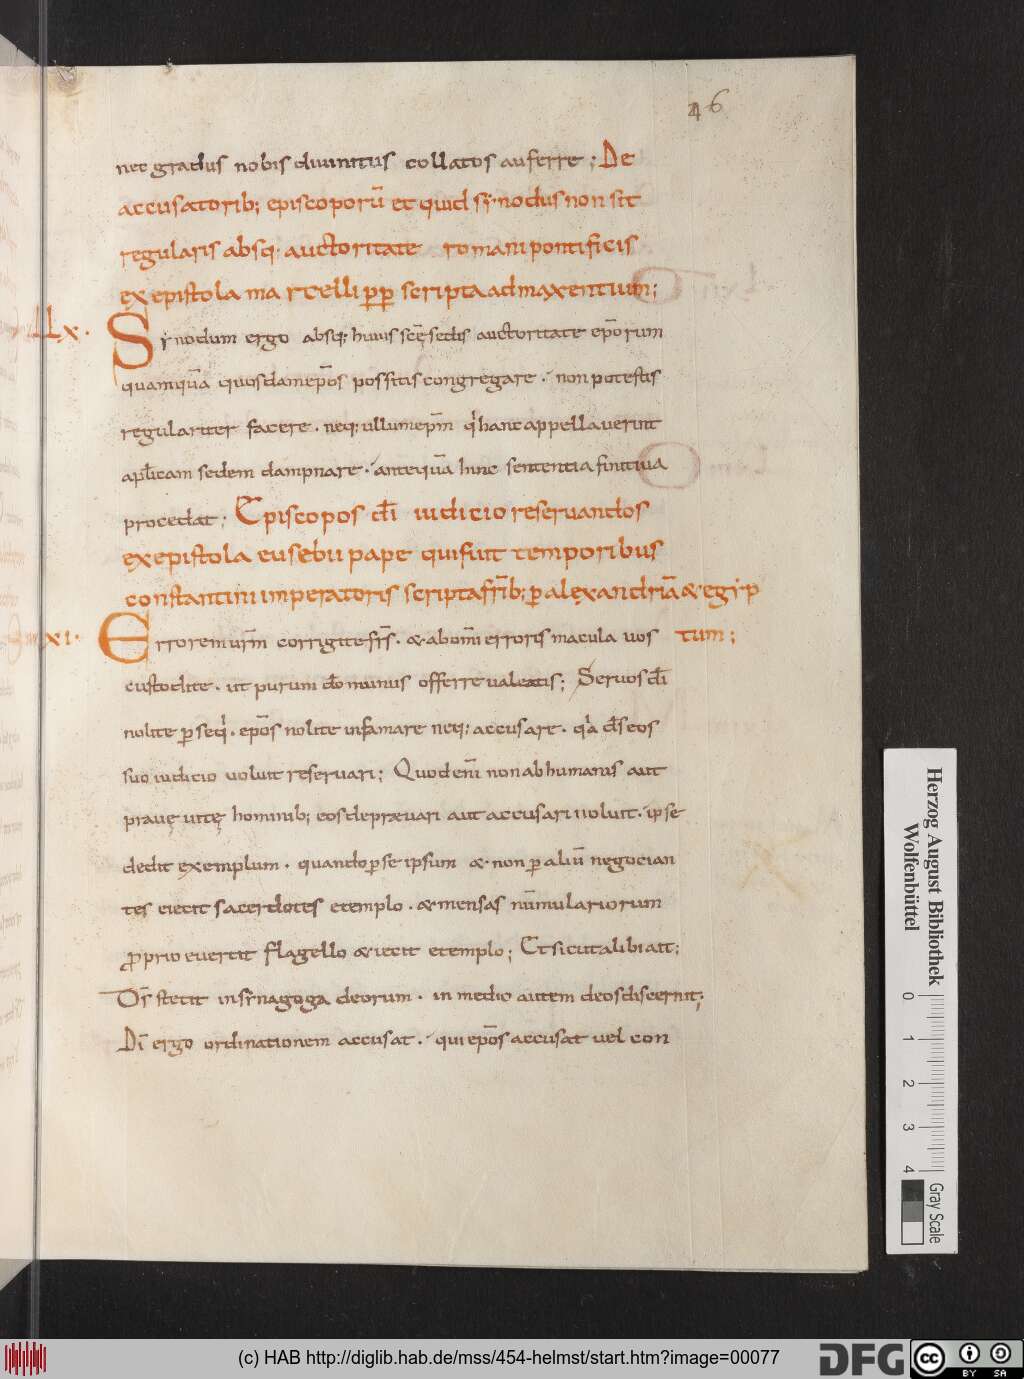 46
nec gradus nobis divinitus collatos auferre; De
accusatorib; episcoporū et quid synodus non sit
regularis absq; auctoritate romani pontificis
ex epistola martcelli pp scripta ad maxentium;
LX. Synodum ergo absq; huius scę sedis auctoritate ep̄orum
quamquā quosdam ep̄os possitis congregare. non potestis
regulariter facere. neq; ullum ep̄m q hanc appellaverint
apl̄icam sedem dampnare. antequā hinc sententia finitiva
procedat; Episcopos dī iudicio reservandos
ex epistola eusebii pape qui fuit temporibus
constantini imperatoris scripta frīb; p alexandriā & egyp
XI. Errorem urm̄ corrigite frs̄. & ab omī erroris macula vos tum;
custodite. ut purum dō munus offerre valeatis; Servos dī
nolite p seqi. ep̄os nolite infamare neq; accusare. qa ds̄ eos
suo iudicio voluit reservari; Quod enī non ab humanis aut
pravę vitę hominib; eos depravari aut accusari voluit. ipse
dedit exemplum. quando p se ipsum & non p aliū negocian
tes eiecit sacerdotes e templo. & mensas nūmulariorum
proprio evertit flagello & iecit e templo; Et sicut alibi ait;
Ds̄ stetit in synagoga deorum. in medio autem deos discernit;
Dī ergo ordinationem accusat. qui ep̄os accusat vel con
Herzog August Bibliothek
Wolfenbüttel
0 1 2 3 4
Gray Scale
(c) HAB http://diglib.hab.de/mss/454-helmst/start.htm?image=00077
DFG
cc BY SA